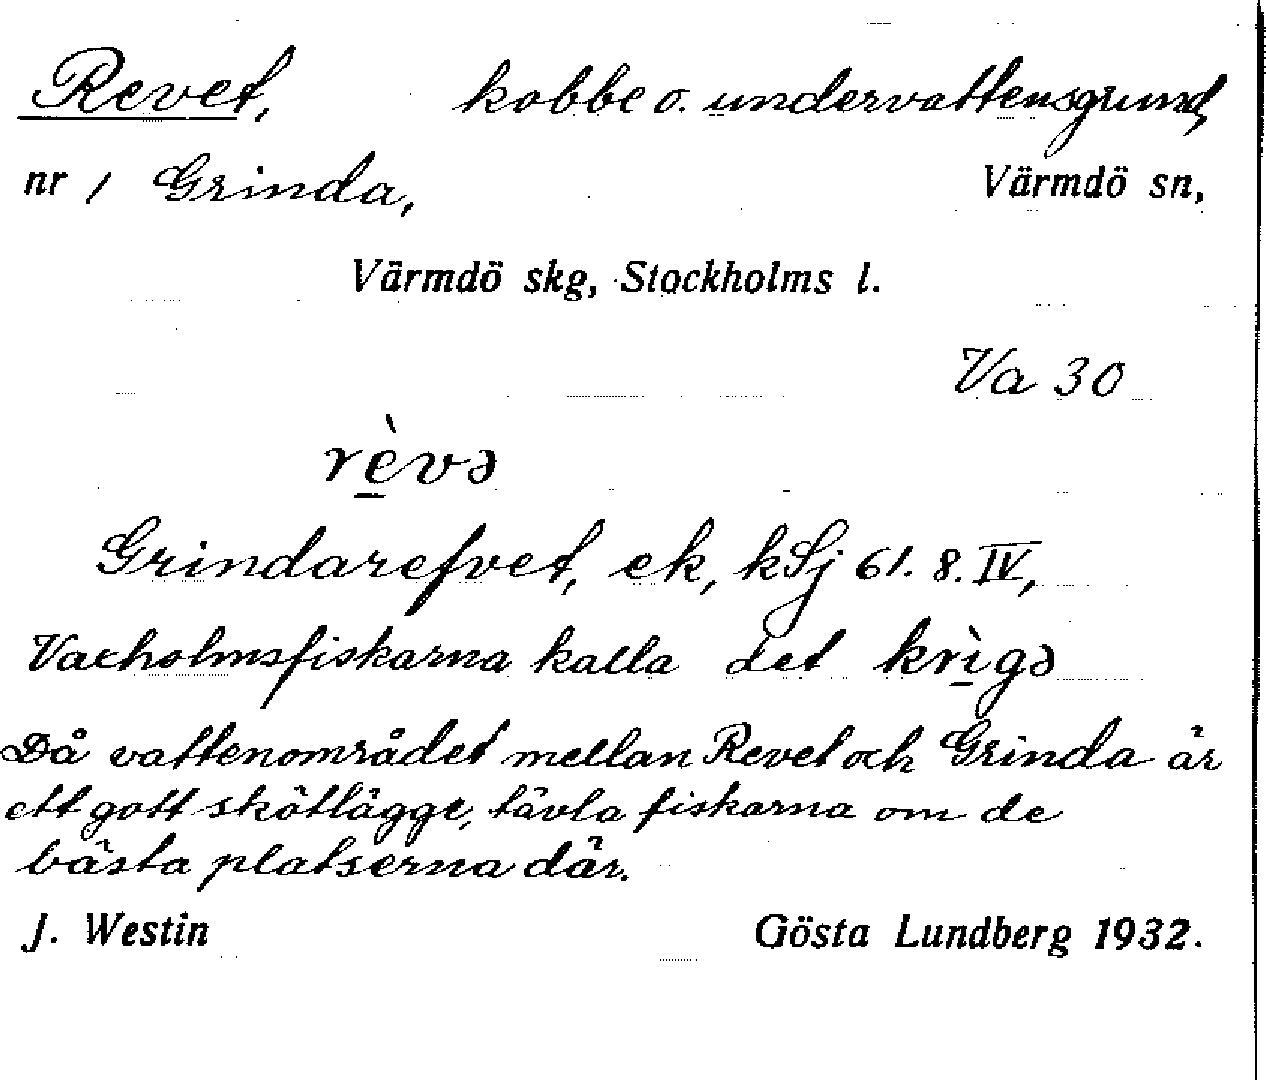 Revet, kobbe o. undervattensgrund,
nr 1 Grinda, Värmdö sn,
Värmdö skg, Stockholms l.
Va 30
rè̱və
Grindarefvet, ek, kSj 61. 8. IV,
Vaxholmsfiskarna kalla det krì̱gə
Då vattenområdet mellan Revet och Grinda är
ett gott skötlägge, tävla fiskarna om de
bästa platserna där.
J. Westin Gösta Lundberg 1932.